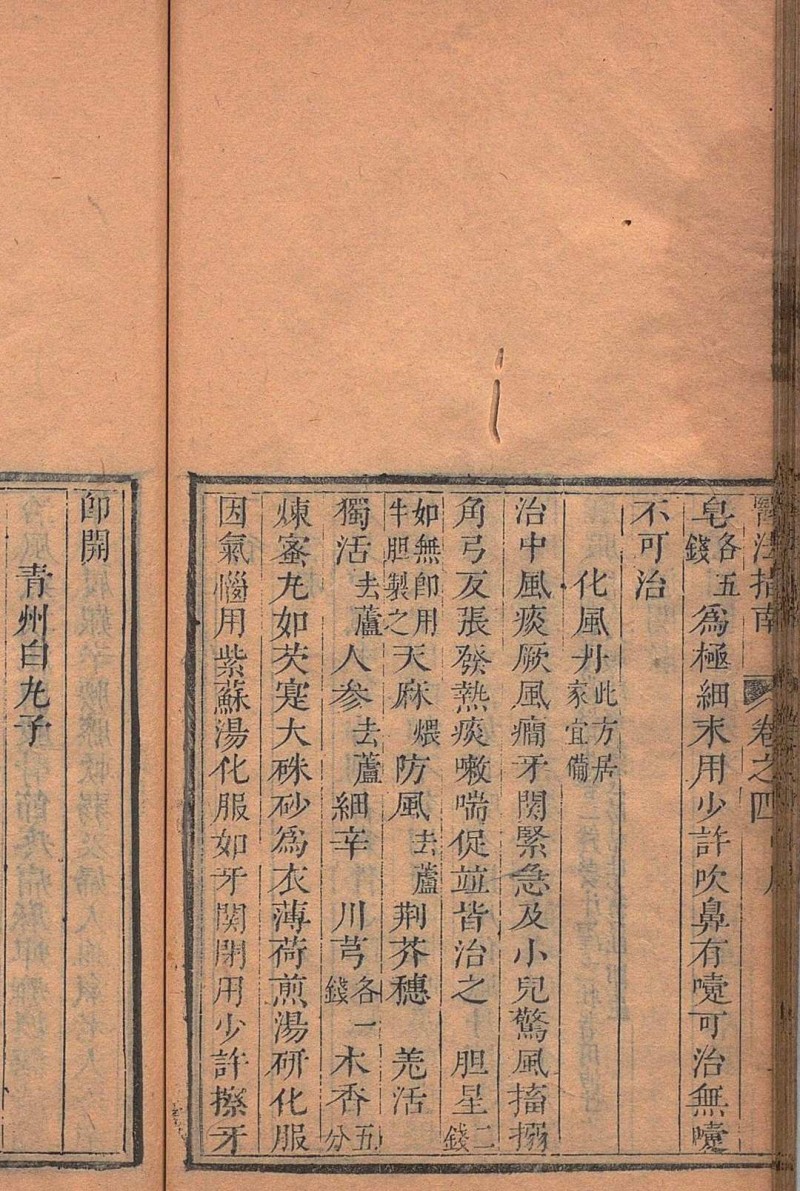 醫法指南 卷之四
皂各五錢為極細末用少許吹鼻有嚏可治無嚏
不可治
化風丹此方居家宜備
治中風痰厥風癇牙関緊急及小兒驚風搐搦
角弓反張發熱痰嗽喘促竝皆治之 胆星二錢
如無卽用牛胆製之天麻煨防風去蘆荆芥穗 羌活
獨活去蘆人參去蘆細辛 川芎各一錢木香五分
煉蜜丸如芡寔大硃砂為衣薄荷煎湯研化服
因氣惱用紫蘇湯化服如牙関閉用少許擦牙
卽開
青州白丸子